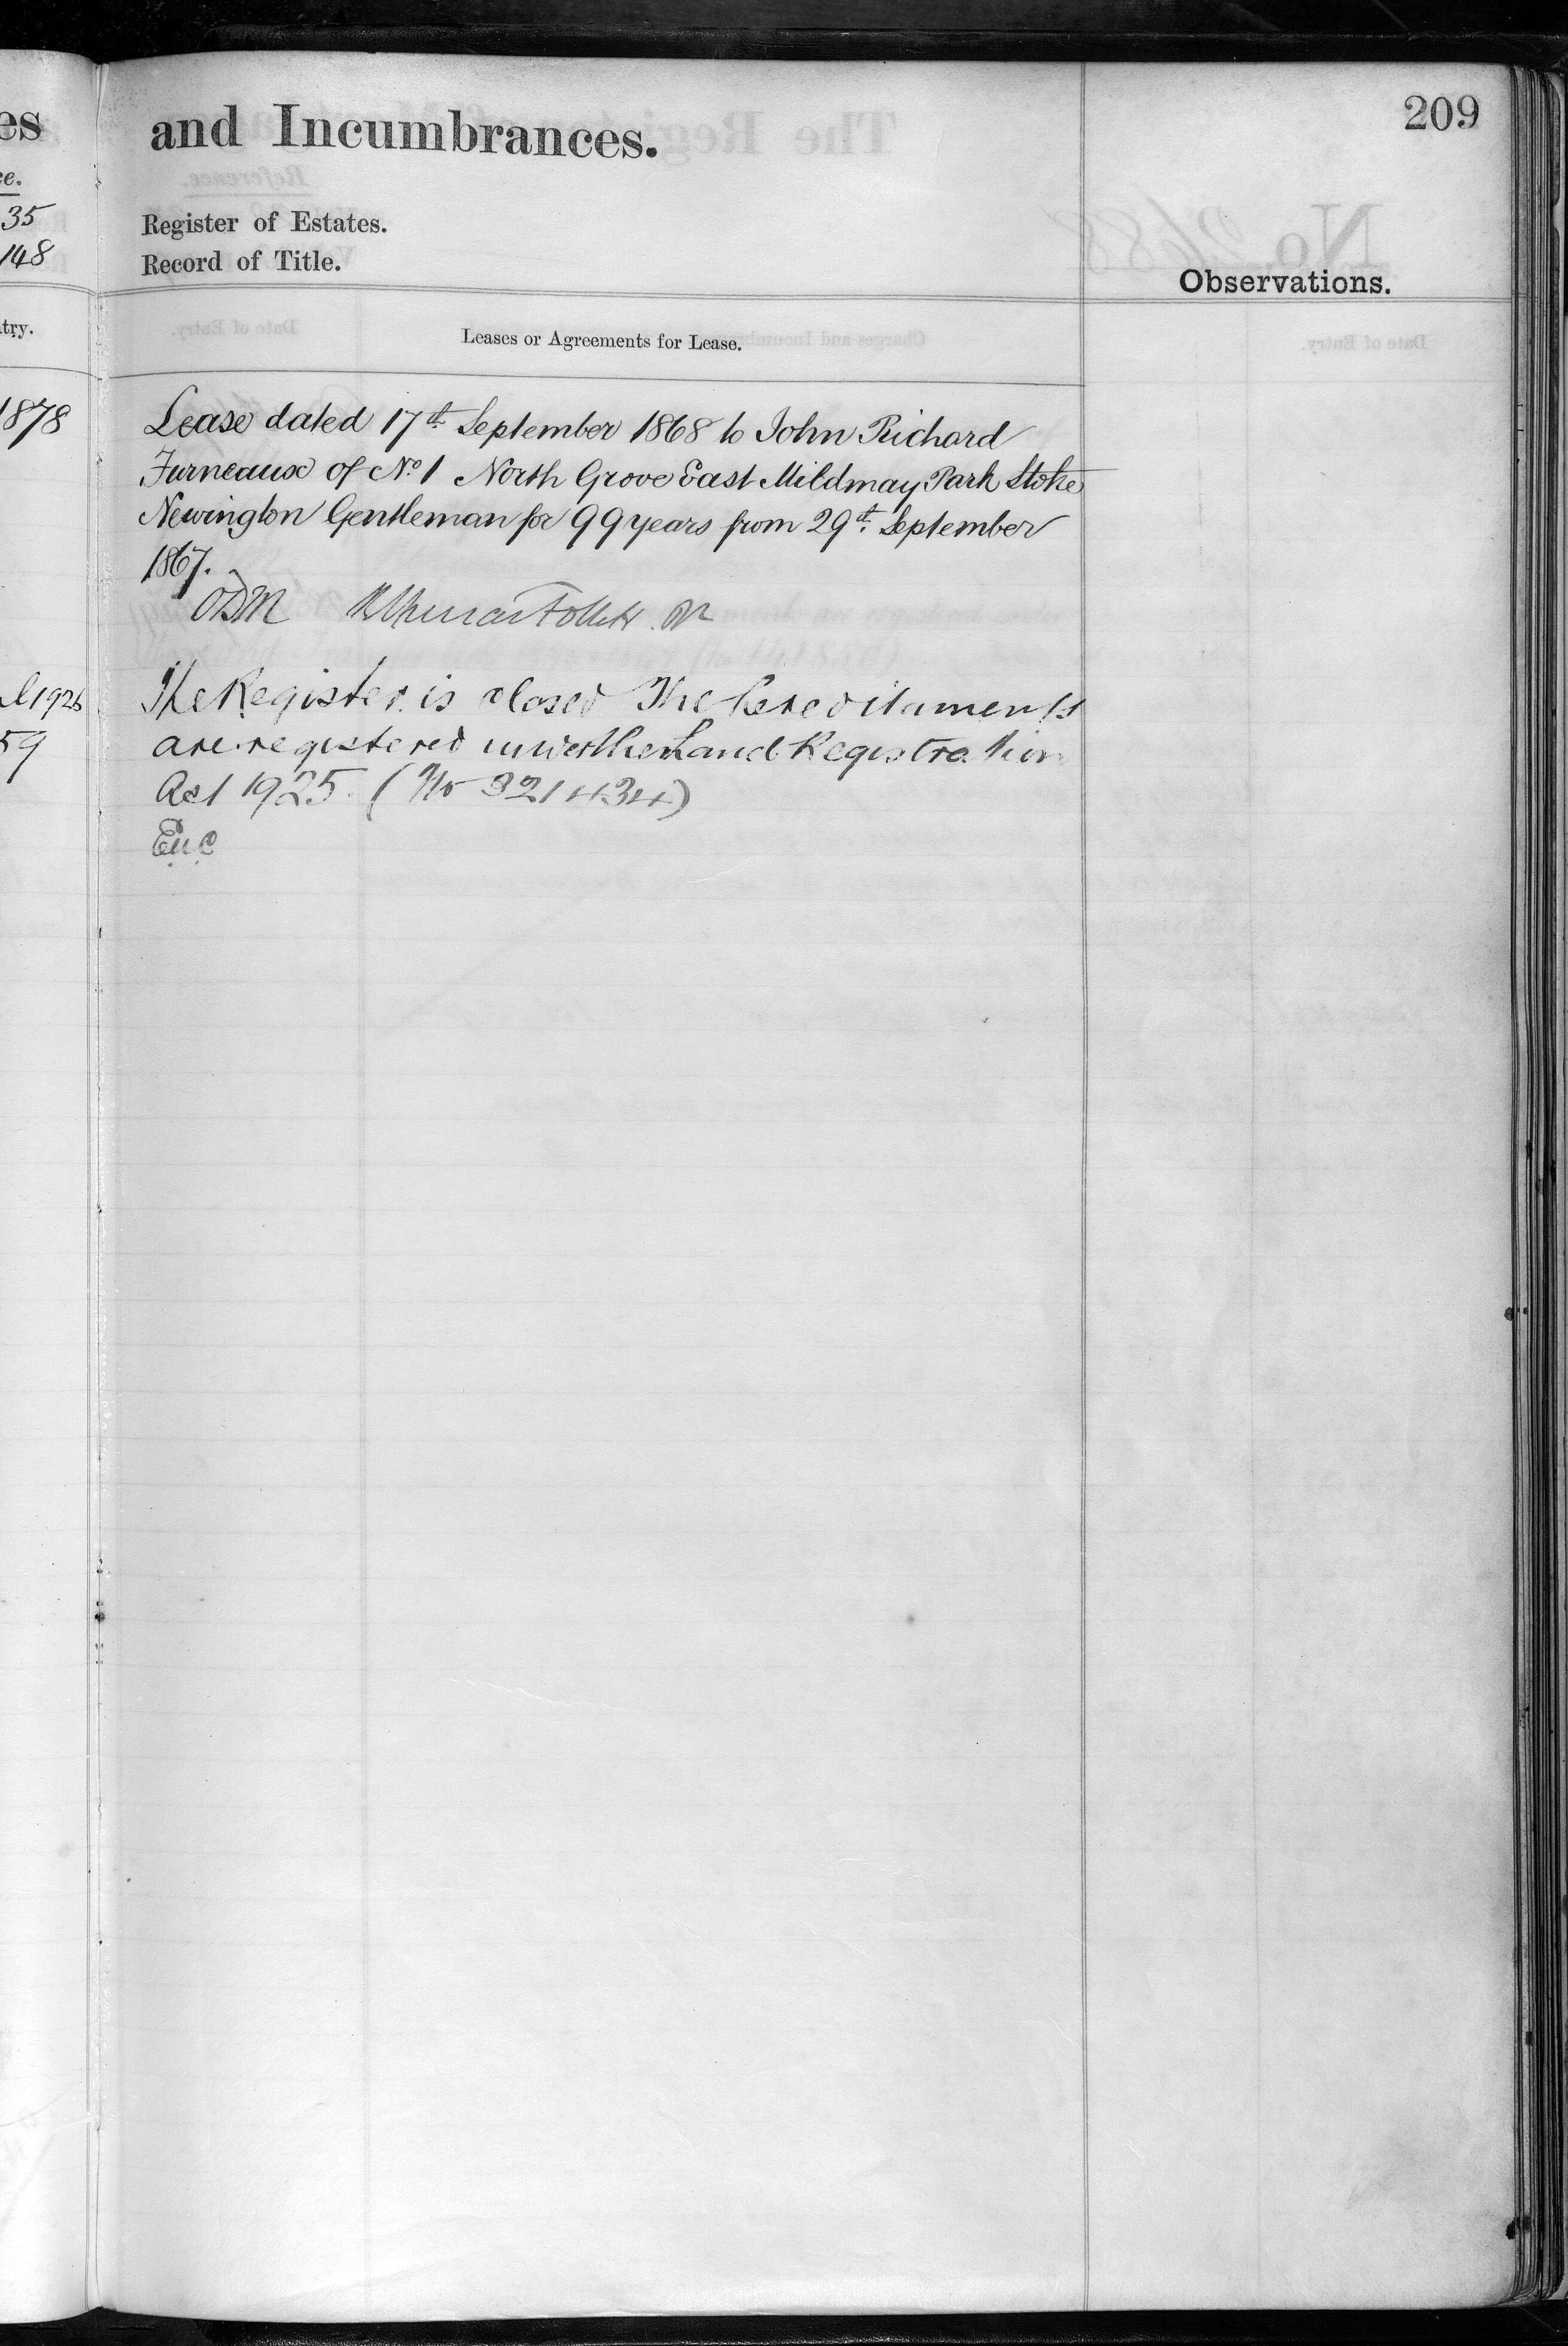 es
and Incumbrances.
209
ce.
35
148
Register of Estates.
Record of Title.
Observations.
try.
Leases or Agreements for Lease.
1878
Lease dated 17th September 1868 to John Richard
Furneaux of No. 1 North Grove East Mildmay Park Stoke
Newington Gentleman for 99 years from 29th September
1867.
ODM
l 1926
59
The Register is closed The hereditaments
are registered under the Land Registration
Act 1925. (No 321434)